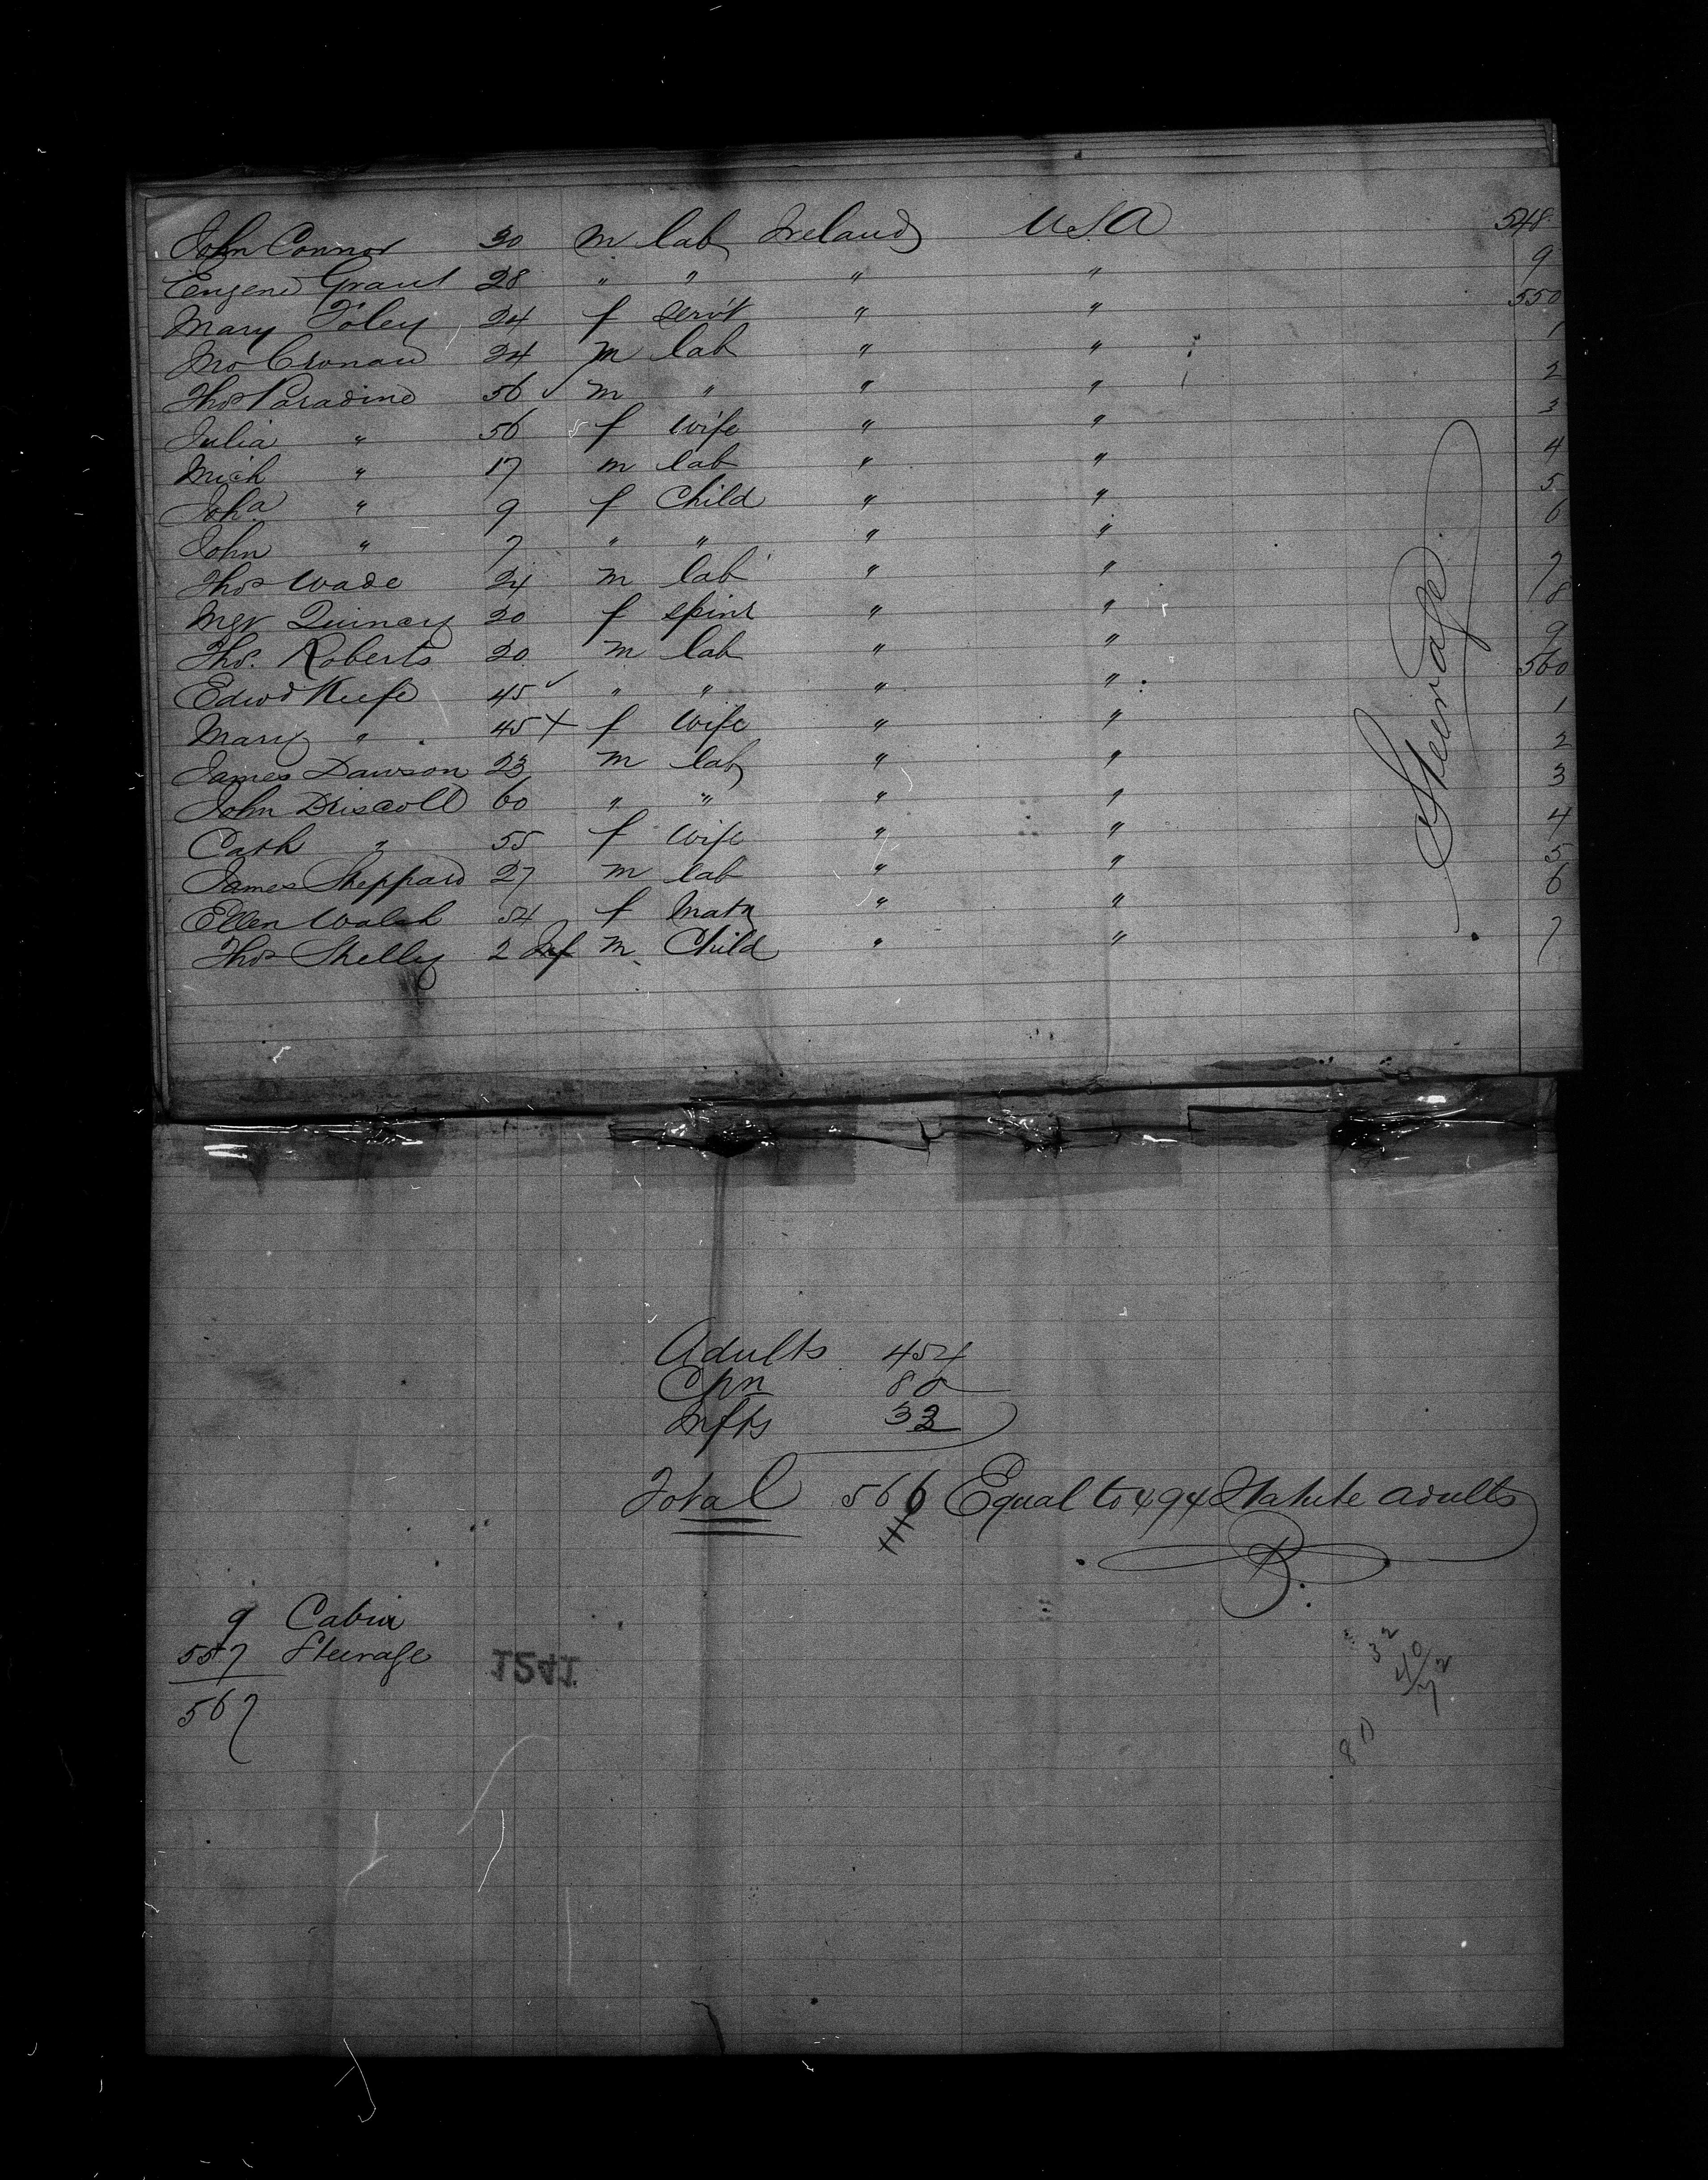 John Connor 30 m lab Ireland USA 548
Eugene Grant 28 " " " " 9
Mary Foley 24 f servt " " 550
Jno Cronan 24 m lab " " 1
Thos Paradine 56 m " " " 2
Julia " 56 f Wife " " 3
Mich " 17 m lab " " 4
Joha " 9 f Child " " 5
John " 7 " " " " 6
Thos Wade 24 m lab " " 7
Mgt Quincey 20 f spinr " " 8
Thos. Roberts 20 m lab " " 9
Edwd Keefe 45 " " " " 560
Mary " 45 f Wife " " 1
James Dawson 23 m lab " " 2
John Driscoll 60 " " " " 3
Cath " 55 f Wife " " 4
James Sheppard 27 m lab " " 5
Ellen Walsh 54 f Matn " " 6
Thos Shelley 2 Inf m Child " " 7
Steerage
Adults 454
Chn 80
Infts 32
Total 566 Equal to 494 Statute adults
B.
9 Cabin
557 Steerage
567
1241
32
40
72
81